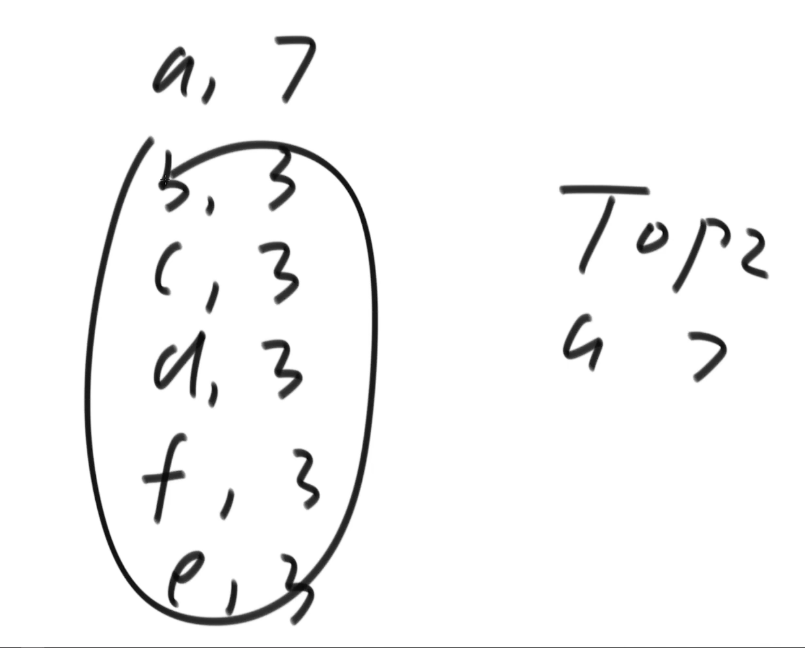 a, 7
b, 3
c, 3
d, 3
f, 3
e, 3
Top2
a 7